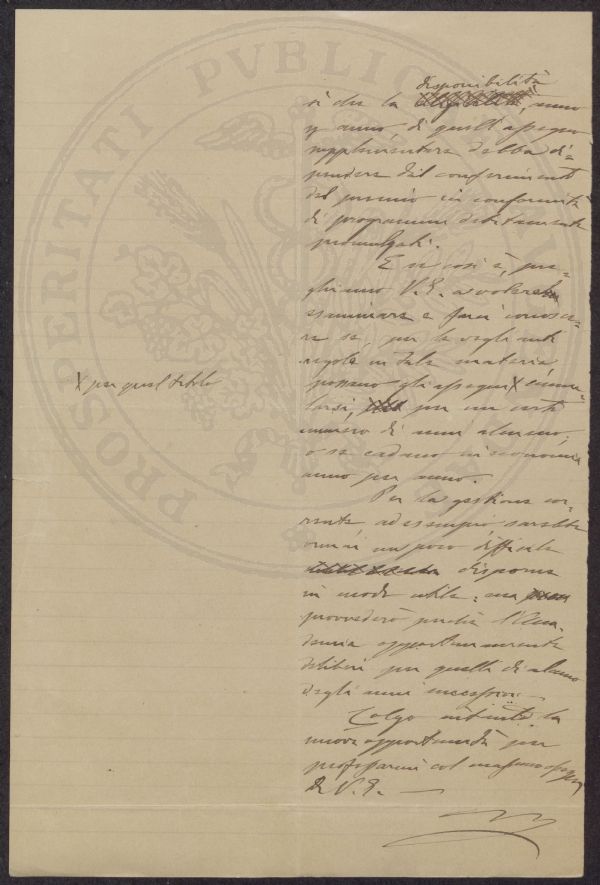 PROSPERITATI PVBLICAE
disponibilità
si che la anno
per anno, di quell'assegno
rappresentare debba di=
pendere dal conferimento
del premio in conformità
di programmi debitamente
promulgati.
E se così è, pre=
ghiamo V. E. a voler
esaminare e farci conosce=
re se, per le veglianti
regole in tale materia
possano gli assegni X cumu=
X per quel titolo
larsi, per un certo
numero di anni almeno,
o se cadano in economia
anno per anno.
Per la gestione cor=
rente ad esempio sarebbe
ormai un poco difficile
disporne
in modo utile: ma
provvederò perchè l'Acca=
demia opportunamente
deliberi per quelli di almeno
degli anni successivi.
Colgo intanto la
nuova opportunità per
professarmi col massimo ossequio
D. V. E.